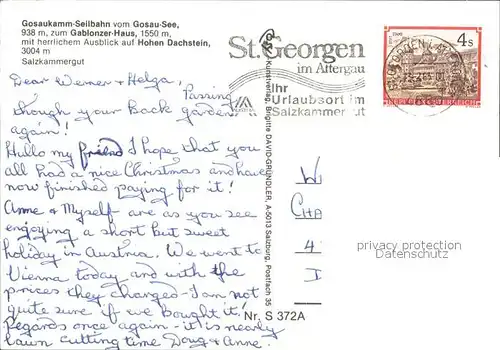 Gosaukamm-Seilbahn vom Gosau-See,
938 m, zum Gablonzer-Haus, 1550 m,
mit herrlichem Ausblick auf Hohen Dachstein,
3004 m
Salzkammergut
Dear Werner & Helga,
Passing
though your Back garden
again!
Hello my friend I hope that you
all had a nice Christmas and have
now finished paying for it!
Anne & Myself are as you see
enjoying a short but sweet
holiday in Austria. We went to
Vienna today and with the
prices they charged I am not
quite sure if we bought it!
Regards once again - it is nearly
lawn cutting time Doug & Anne.
Kunstverlag, Brigitte DAVID-GRÜNDLER, A-5013 Salzburg, Postfach 35
Nr. S 372A
St. Georgen
im Attergau
Ihr
Urlaubsort im
Salzkammergut
4 S
W
CHA
4
D
privacy protection
Datenschutz